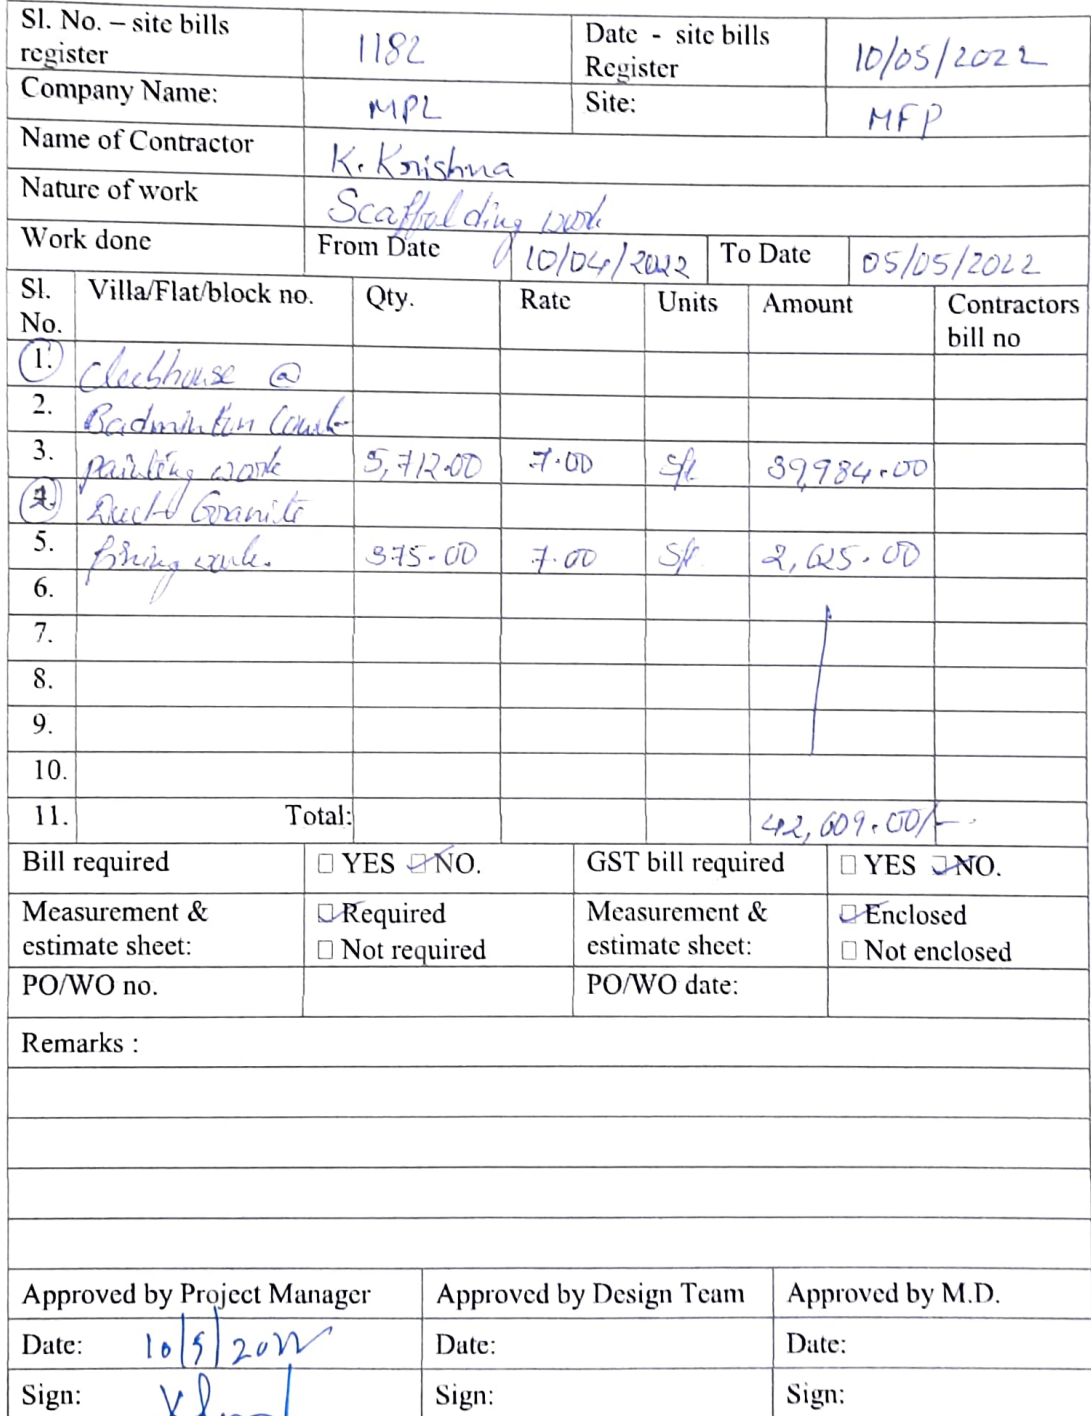 Sl. No. – site bills register 1182 Date - site bills Register 10/05/2022
Company Name: MPL Site: MFP
Name of Contractor K. Krishna
Nature of work Scaffolding work
Work done From Date 10/04/2022 To Date 05/05/2022
Sl. No. Villa/Flat/block no. Qty. Rate Units Amount Contractors bill no
1. Clubhouse @
2. Badminton Court
3. painting work 5,712.00 7.00 Sft. 39,984.00
2. Duct Granite
5. fixing work. 375.00 7.00 Sft. 2,625.00
6.
7.
8.
9.
10.
11. Total: 42,609.00/-
Bill required □ YES □ NO. GST bill required □ YES □ NO.
Measurement & estimate sheet: □ Required □ Not required Measurement & estimate sheet: □ Enclosed □ Not enclosed
PO/WO no. PO/WO date:
Remarks :
Approved by Project Manager Approved by Design Team Approved by M.D.
Date: 10/5/2022 Date: Date:
Sign: Sign: Sign: